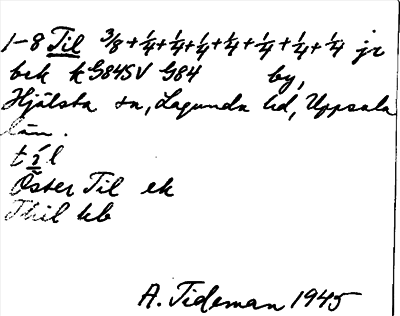 1-8 Til 3/8+1/4+1/4+1/4+1/4+1/4+1/4+1/4 jr
bek k G84SV G84 by,
Hjälsta sn, Lagunda hd, Uppsala
län.
tíl
Öster Til ek
Thil kb
A. Tideman 1945